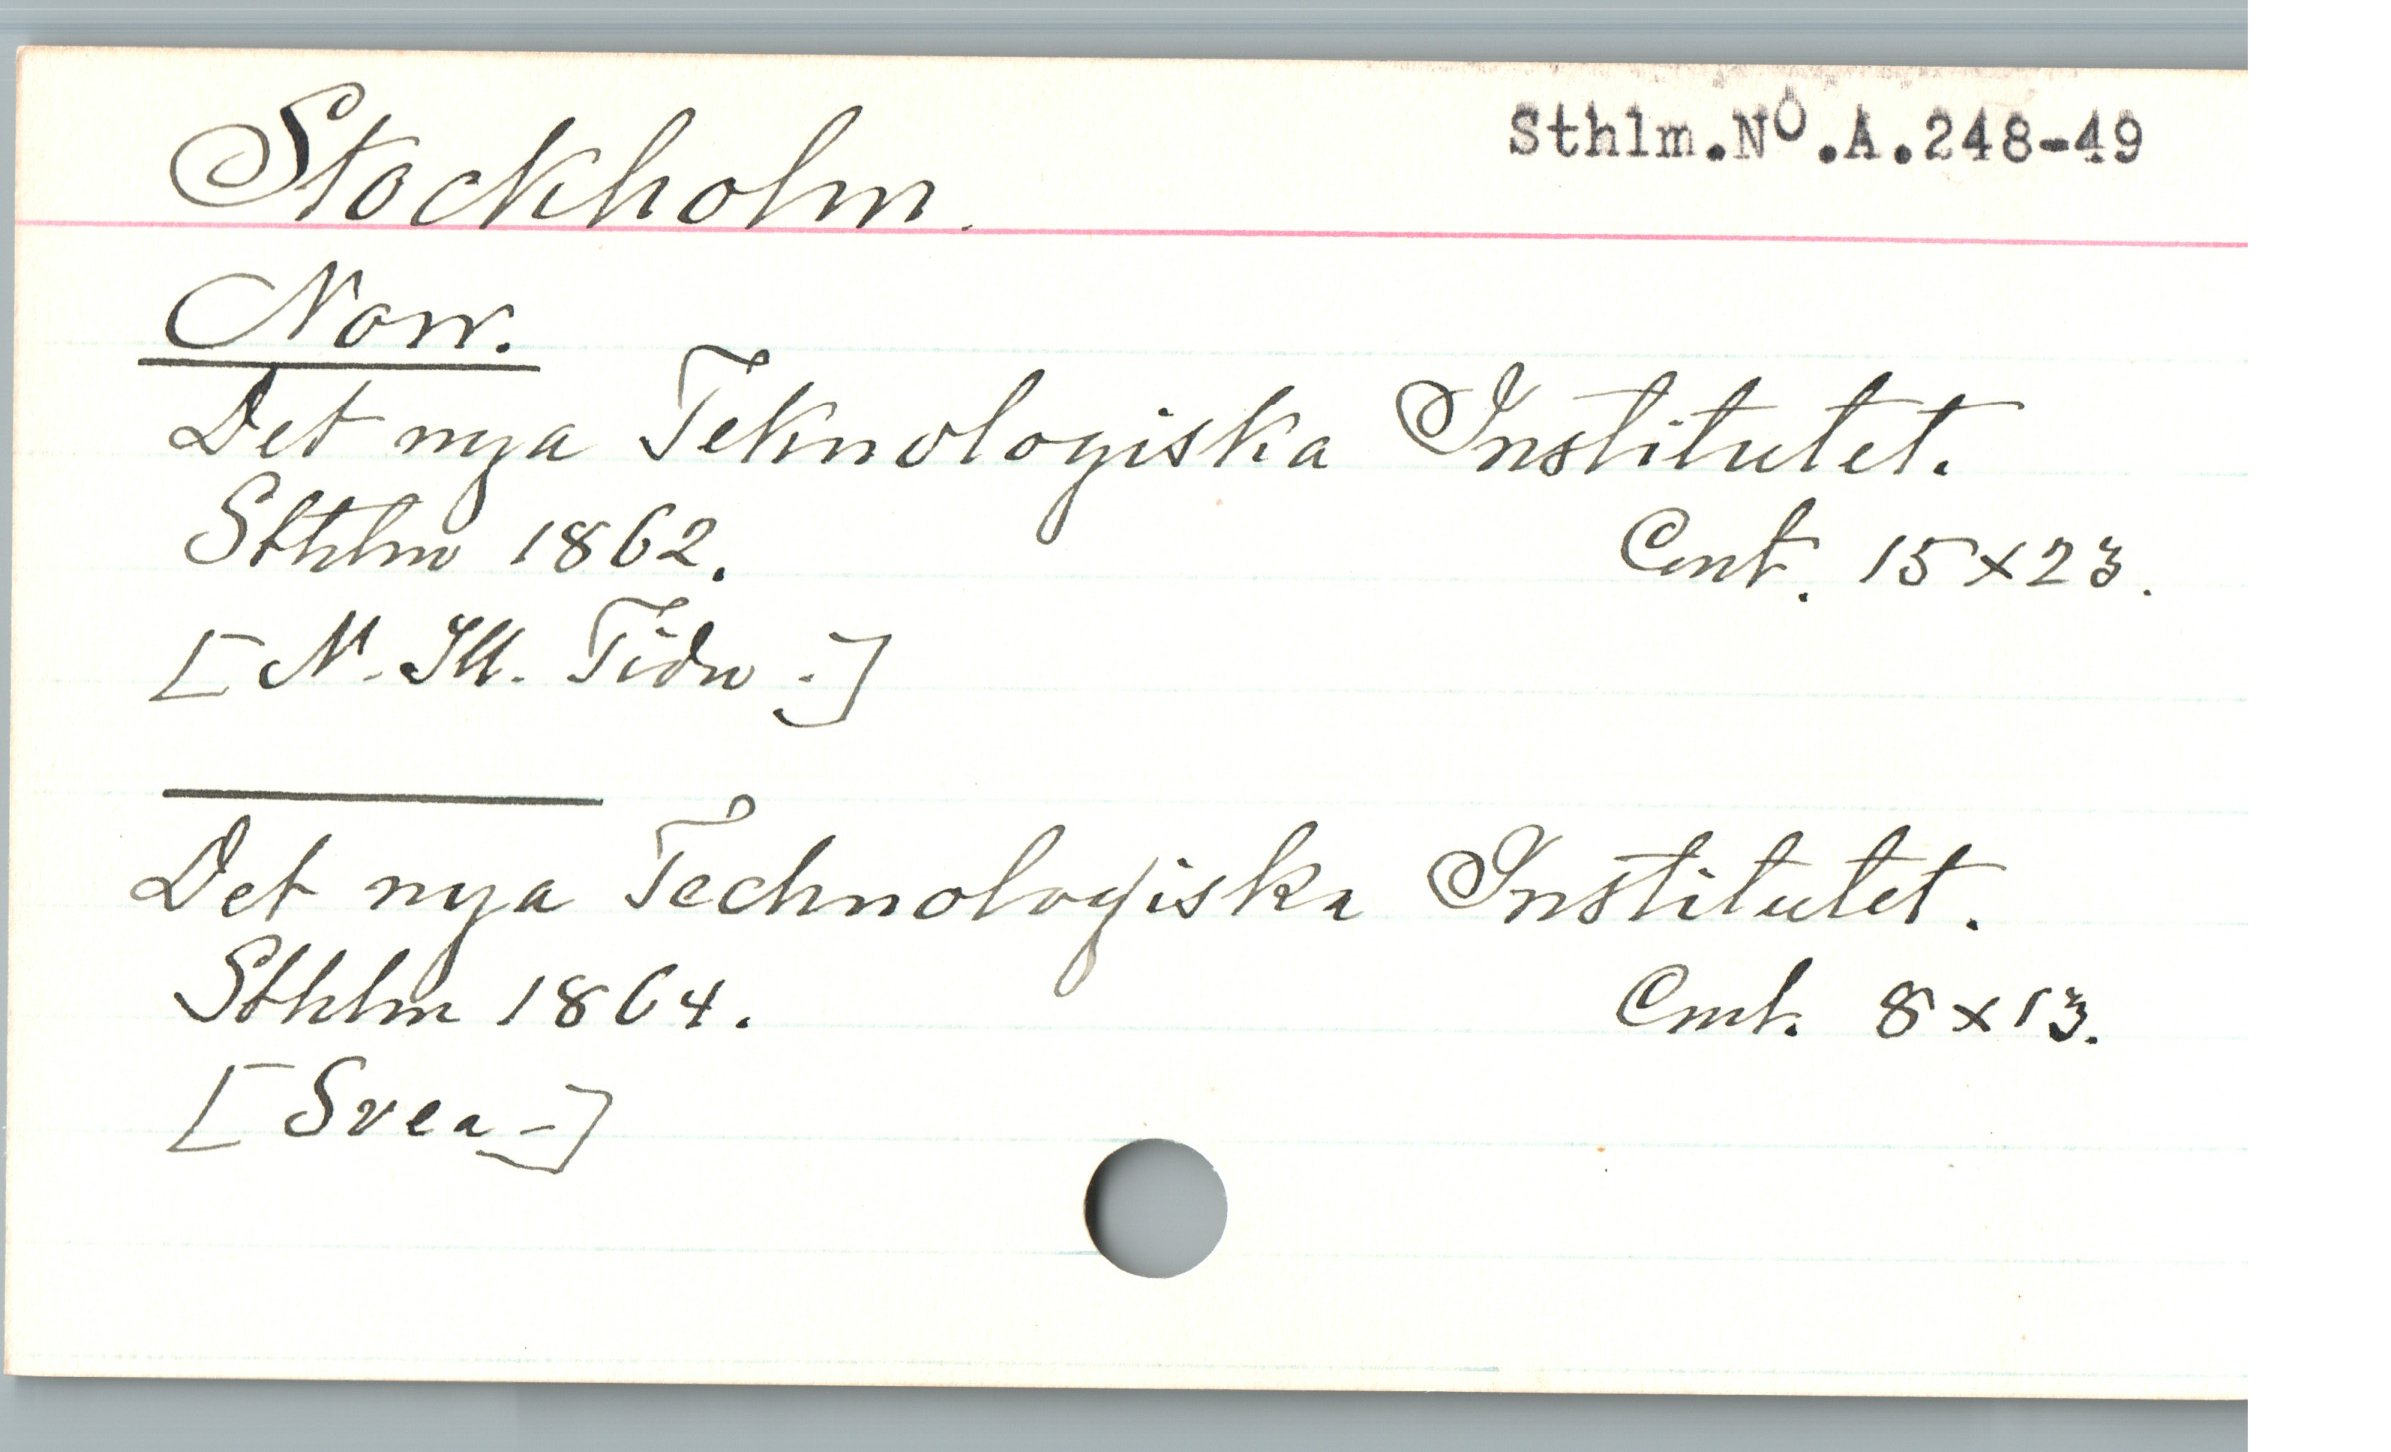 Stockholm.
Sthlm.Nº.A.248-49
Norr.
Det nya Teknologiska Institutet.
Sthlm 1862.
Cmt. 15 x 23.
[N. Ill. Tidn.-]
Det nya Technologiska Institutet.
Sthlm 1864.
Cmt. 8 x 13.
[Svea-]